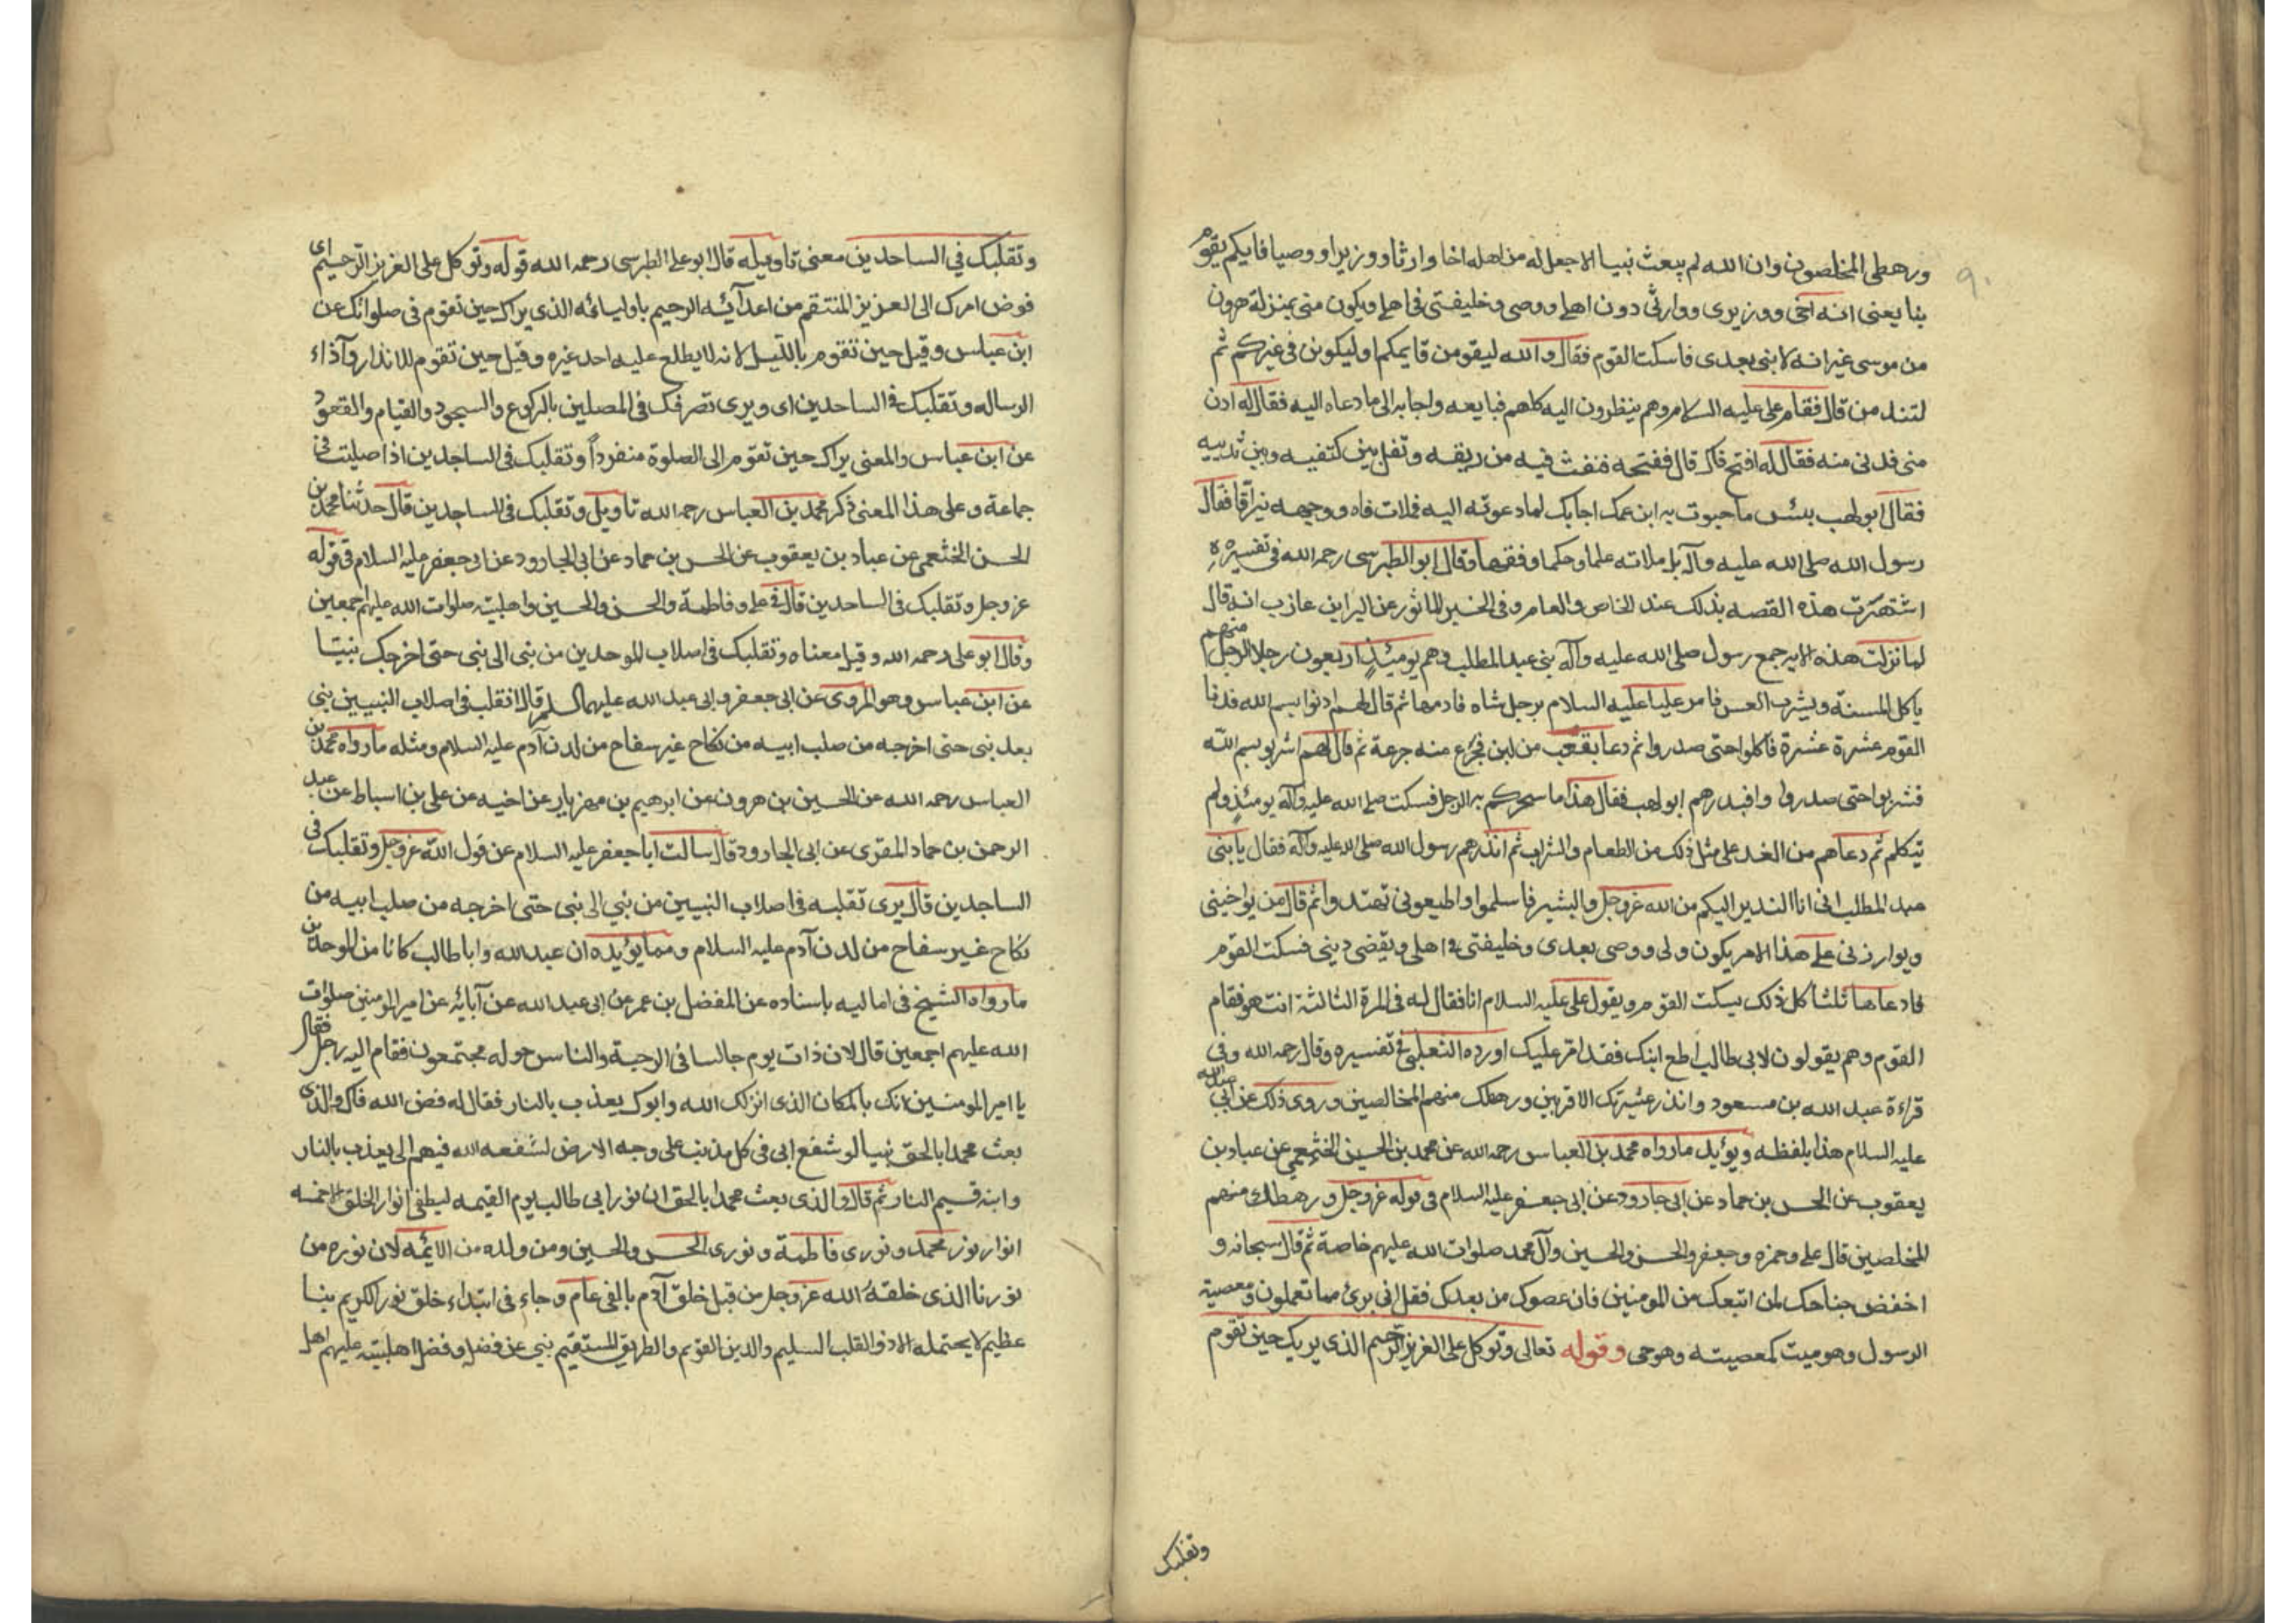 ٩٠
ورهطى المخلصون وان الله لم يبعث نبيا الا جعل له من اهله اخا وارثا ووزيرا ووصيا فايكم يقوم
بنا يعنى انه اخى ووزيرى ووارثى دون اهلى ووصى وخليفتى فى اهلى ويكون منى بمنزلة هرون
من موسى غير انه لا نبى بعدى فاسكت القوم فقال والله ليقومن قايمكم او ليكونن فى غيركم ثم
لتندمن قال فقام على عليه السلام وهم ينظرون اليه كلهم فبايعه واجابه الى ما دعاه اليه فقال له ادن
منى فدنى منه فقال له افتح فاك قال ففتحه فنفث فيه من ريقه وتفل بين كتفيه وبين ثدييه
فقال ابو لهب بئس ما حبوت به ابن عمك اجابك لما دعوته اليه فملات فاه ووجهه بزاقا فقال
رسول الله صلى الله عليه وآله بل ملاته علما وحكما وفقها وقال ابو الطبرسى رحمه الله فى تفسيره
اشتهرت هذه القصه بذلك عند الخاص والعام وفى الخبر الماثور عن البرا بن عازب انه قال
لما نزلت هذه الايه جمع رسول صلى الله عليه وآله بنى عبد المطلب وهم يومئذ اربعون رجلا الرجل منهم
ياكل المسنة ويشرب العس فامر عليا عليه السلام برجل شاه فادمها ثم قال لهم ادنوا بسم الله فدنا
القوم عشرة عشرة فاكلوا حتى صدروا ثم دعا بقعب من لبن فجرع منه جرعة ثم قال لهم اشربو بسم الله
فشربوا حتى صدروا وافبدرهم ابو لهب فقال هذا ما سحركم به الرجل فسكت صلى الله عليه وآله يومئذ ولم
يتكلم ثم دعاهم من الغد على مثل ذلك من الطعام والشراب ثم انذرهم رسول الله صلى الله عليه وآله فقال يا بنى
عبد المطلب انى انا النذير اليكم من الله عز وجل والبشير فاسلموا واطيعونى تهتدوا ثم قال من يواخينى
ويوارزنى على هذا الامر يكون ولى ووصى بعدى وخليفتى فى اهلى ويقضى دينى فسكت القوم
فادعاها ثلثا كل ذلك يسكت القوم ويقول على عليه السلام انا فقال له فى المرة الثالثة انت هو فقام
القوم وهم يقولون لابى طالب اطع ابنك فقد امر عليك اورده الثعلبى فى تفسيره وقال رحمه الله وفى
قراءة عبد الله بن مسعود وانذر عشيرتك الاقربين ورهطك منهم المخالصين وروى ذلك عن ابى عبد الله
عليه السلام هذا بلفظه ويؤيد ما رواه محمد بن العباس رحمه الله عن محمد بن الحسين الخثعمى عن عباد بن
يعقوب عن الحسن بن حماد عن ابى جارود عن ابى جعفر عليه السلام فى قوله عز وجل ورهطك منهم
المخلصين قال على وحمزه وجعفر والحسن والحسين وآل محمد صلوات الله عليهم خاصة ثم قال سبحانه و
اخفض جناحك لمن اتبعك من المومنين فان عصوك من بعدك فقل انى برئ مما تعملون ومعصية
الرسول وهو ميت كمعصيته وهو حى وقوله تعالى وتوكل على العزيز الرحيم الذى يريك حين تقوم
وتقلبك
وتقلبك فى الساجدين معنى تاويله قال ابو على الطبرسى رحمه الله قوله وتوكل على العزيز الرحيم اى
فوض امرك الى العزيز المنتقم من اعدآئه الرحيم باوليائه الذى يراك حين تقوم فى صلواتك عن
ابن عباس وقيل حين تقوم بالليل لانه لا يطلع عليه احد غيره وقيل حين تقوم للانذار وآذاء
الرساله وتقلبك فى الساجدين اى ويرى تصرفك فى المصلين بالركوع والسجود والقيام والقعود
عن ابن عباس والمعنى يراك حين تقوم الى الصلوة منفرداً وتقلبك فى الساجدين اذا صليت فى
جماعة وعلى هذا المعنى ذكر محمد بن العباس رحمه الله تاويل وتقلبك فى الساجدين قال حدثنا محمد بن
الحسن الخثعمى عن عباد بن يعقوب عن الحسن بن حماد عن ابى الجارود عن ابى جعفر عليه السلام فى قوله
عز وجل وتقلبك فى الساجدين قال فى على وفاطمة والحسن والحسين واهلبيته صلوات الله عليهم اجمعين
وقال ابو على رحمه الله وقيل معناه وتقلبك فى اصلاب الموحدين من نبى الى نبى حتى اخرجك نبيا
عن ابن عباس وهو المروى عن ابى جعفر وابى عبد الله عليهما السلم قالا تقلب فى اصلاب النبيين نبى
بعد نبى حتى اخرجه من صلب ابيه من نكاح غير سفاح من لدن آدم عليه السلام ومثله ما رواه محمد بن
العباس رحمه الله عن الحسين بن هرون عن ابرهيم بن مهزيار عن اخيه عن على بن اسباط عن عبد
الرحمن بن حماد المقرى عن ابى الجارود قال سالت ابا جعفر عليه السلام عن قول الله عز وجل وتقلبك فى
الساجدين قال يرى تقلبه فى اصلاب النبيين من نبي الى نبى حتى اخرجه من صلب ابيه من
نكاح غير سفاح من لدن آدم عليه السلام ومما يؤيده ان عبد الله وابا طالب كانا من الموحدين
ما رواه الشيخ فى اماليه باسناده عن المفضل بن عمر عن ابى عبد الله عن آبائه عن امير المومنين صلوات
الله عليهم اجمعين قال لان ذات يوم جالسا فى الرحبة والناس حوله مجتمعون فقام اليه رجل فقال
يا امير المومنين انك بالمكان الذى انزلك الله وابوك يعذب بالنار فقال له فض الله فاك والذى
بعث محمدا بالحق نبيا لو شفع ابى فى كل مذنب على وجه الارض لشفعه الله فيهم ابى يعذب بالنار
وابنه قسيم النار ثم قال والذى بعث محمدا بالحق ان نور ابى طالب يوم القيمه ليطفى انوار الخلق الا خمسه
انوار نور محمد ونورى فاطمة ونورى الحسن والحسين ومن ولده من الائمه لان نوره من
نورنا الذى خلقه الله عز وجل من قبل خلق آدم بالفى عام وجاء فى ابتداء خلق نور الكريم بنبا
عظيم لا يحتمله الا ذو القلب السليم والدين القويم والطريق المستقيم ينبى عن فضله وفضل اهلبيته عليهم اهل